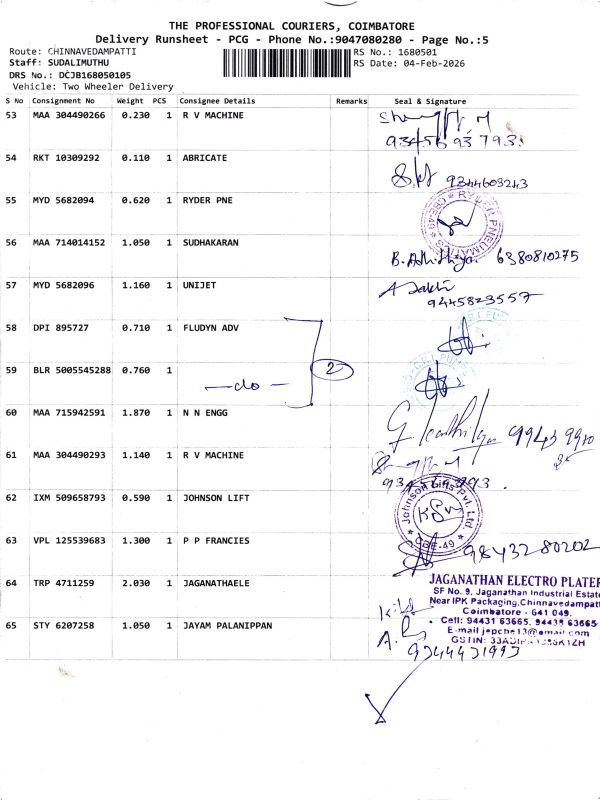 THE PROFESSIONAL COURIERS, COIMBATORE
Delivery Runsheet - PCG - Phone No.:9047080280 - Page No.:5
Route: CHINNAVEDAMPATTI RS No.: 1680501
Staff: SUDALIMUTHU RS Date: 04-Feb-2026
DRS No.: DCJB168050105
Vehicle: Two Wheeler Delivery
S No Consignment No Weight PCS Consignee Details Remarks Seal & Signature
53 MAA 304490266 0.230 1 R V MACHINE
93456 93 793
54 RKT 10309292 0.110 1 ABRICATE
9344603243
55 MYD 5682094 0.620 1 RYDER PNE
RYDER PNEUMATIS CBE-49
56 MAA 714014152 1.050 1 SUDHAKARAN
6380810275
57 MYD 5682096 1.160 1 UNIJET
9445823557
58 DPI 895727 0.710 1 FLUDYN ADV
59 BLR 5005545288 0.760 1
—do— 2
60 MAA 715942591 1.870 1 N N ENGG
99439910
61 MAA 304490293 1.140 1 R V MACHINE
62 IXM 509658793 0.590 1 JOHNSON LIFT
Johnson Lifts Pvt. Ltd. CBE-49
63 VPL 125539683 1.300 1 P P FRANCIES
9843280202
64 TRP 4711259 2.030 1 JAGANATHAELE
JAGANATHAN ELECTRO PLATER
SF No. 9, Jaganathan Industrial Estate
Near IPK Packaging,Chinnavedampatt
Coimbatore - 641 049.
65 STY 6207258 1.050 1 JAYAM PALANIPPAN
Cell: 94431 63665, 94438 63665
E-mail jepcbe13@gmail.com
9344431993